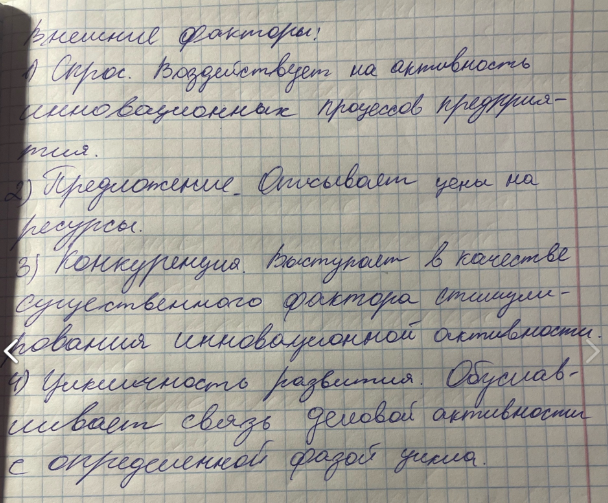 Внешние факторы:
1) Спрос. Воздействует на активность
инновационных процессов предприя-
тия.
2) Предложение. Описывает цены на
ресурсы.
3) Конкуренция. Выступает в качестве
существенного фактора стимули-
рования инновационной активности.
4) Цикличность развития. Обуслав-
ливает связь деловой активности
с определенной фазой цикла.